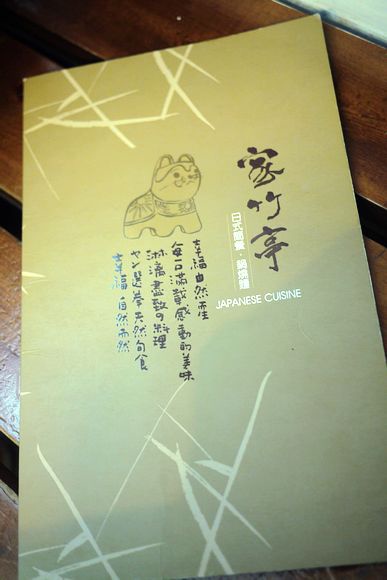 家竹亭
日式簡餐‧鍋燒麵
JAPANESE CUISINE
幸福由然而生
每口滿載感動的美味
淋漓盡致の料理
天然句食
幸福 自然而然